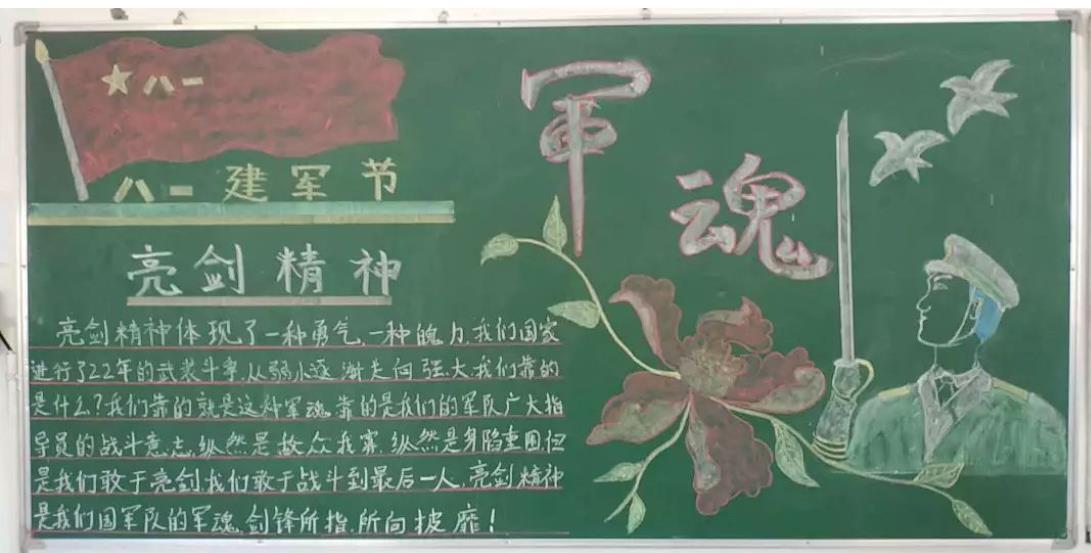 八一
八一建军节
军魂
亮剑精神
亮剑精神体现了一种勇气,一种魄力,我们国家
进行了22年的武装斗争,从弱小逐渐走向强大,我们靠的
是什么?我们靠的就是这种军魂,靠的是我们的军队广大指
导员的战斗意志,纵然是敌众我寡,纵然是身陷重围,但
是我们敢于亮剑,我们敢于战斗到最后一人,亮剑精神
是我们国军队的军魂,剑锋所指,所向披靡!